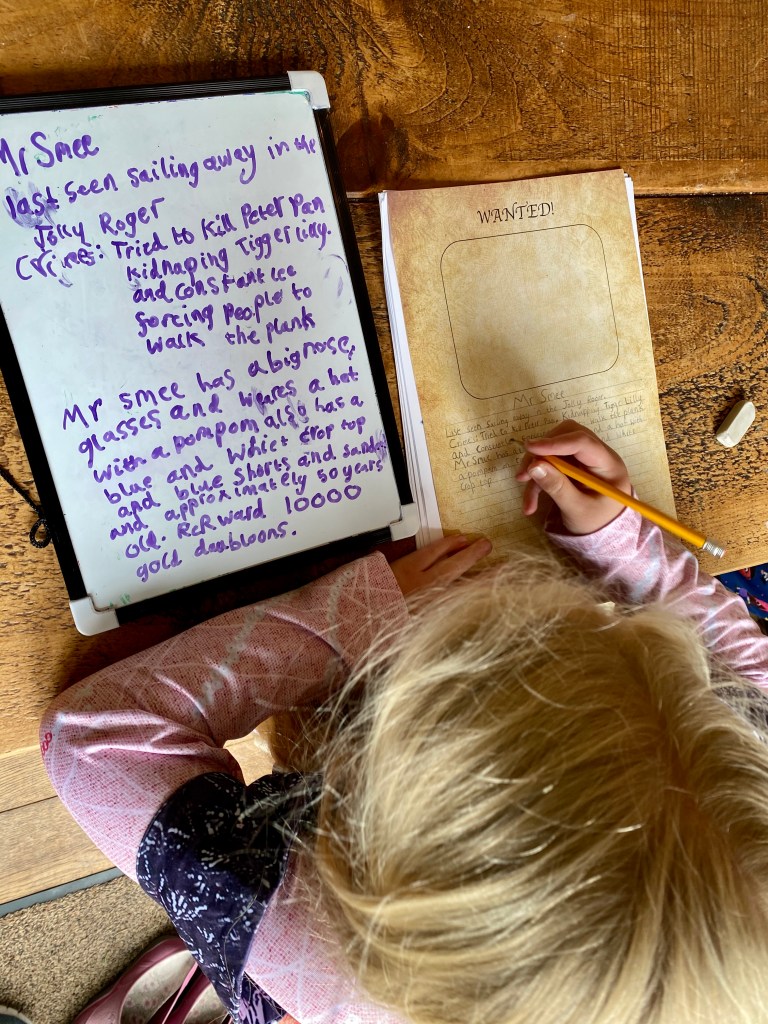 Mr Smee
last seen sailing away in the
Jolly Roger
Crimes: Tried to kill Peter Pan
kidnaping Tigger lilly.
and constant lee
forcing people to
walk the plank
Mr smee has a big nose,
glasses and wears a hat
with a pompom also has a
blue and whiet crop top
and blue shorts and sandals
and approximately 50 years
old. ReRward 10000
gold daubloons.
WANTED!
Mr Smee
seen sailing away in the Jolly Roger
to kill Peter Pan Kidnaping
and
Mr Smee has
a pompom
crop top